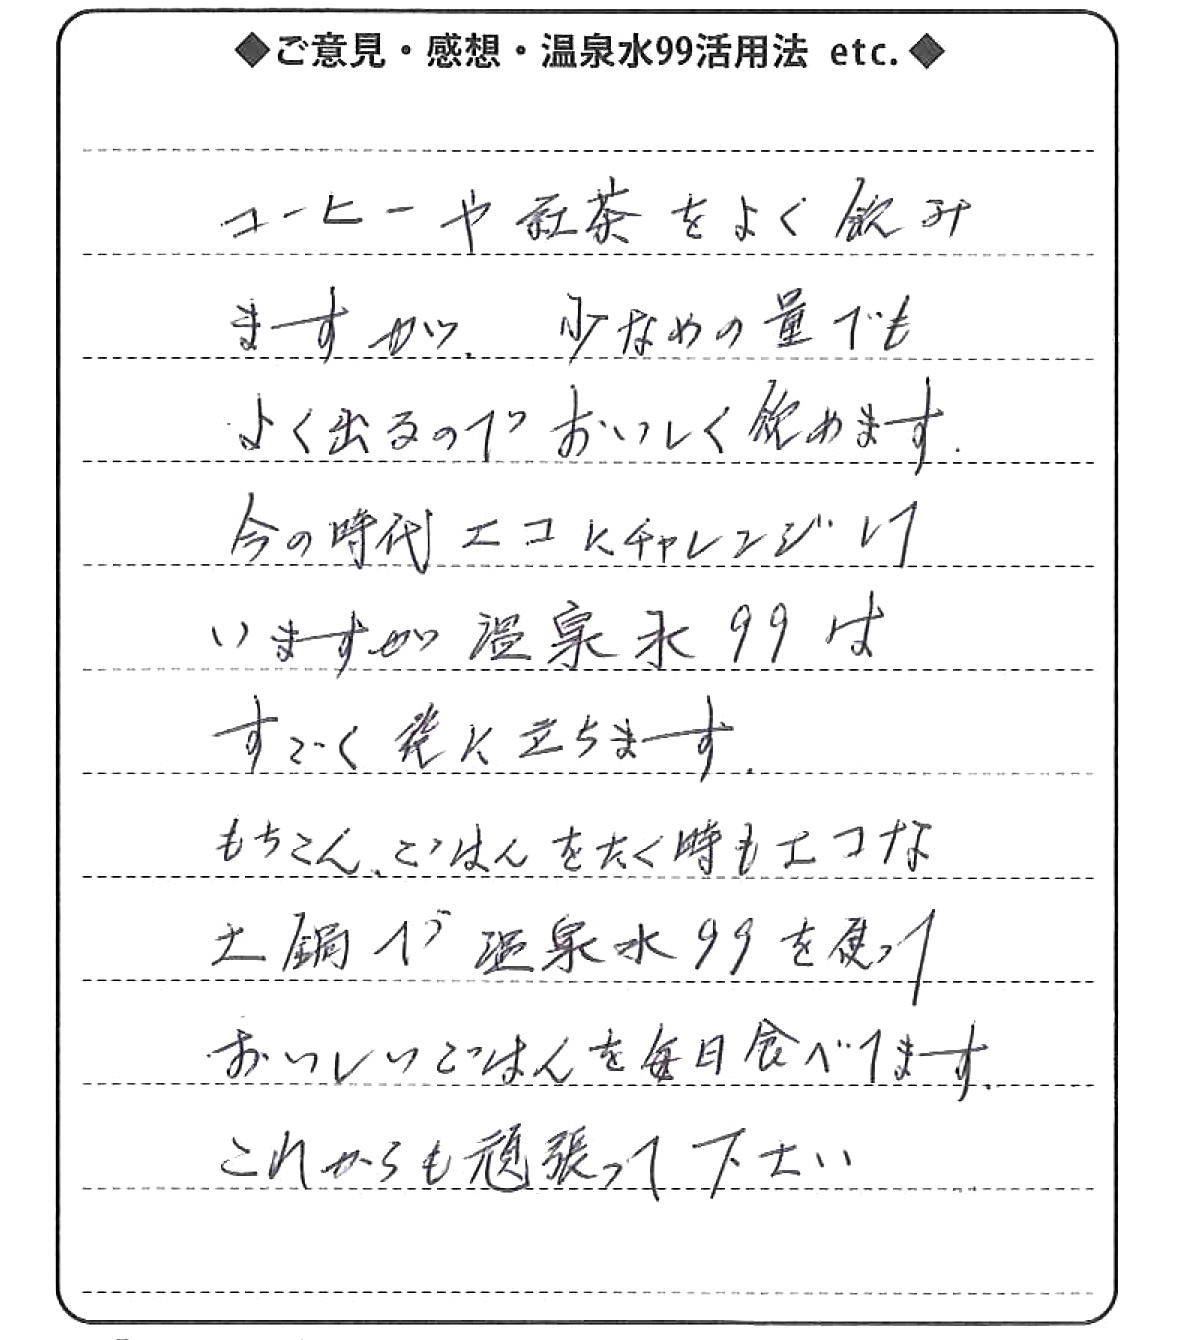 ◆ご意見・感想・温泉水99活用法 etc.◆
コーヒーや紅茶をよく飲み
ますが、少なめの量でも
よく出るのでおいしく飲めます。
今の時代エコにチャレンジして
いますが温泉水99は
すごく役に立ちます。
もちろん、ごはんをたく時もエコな
土鍋で温泉水99を使って
おいしいごはんを毎日食べてます。
これからも頑張って下さい